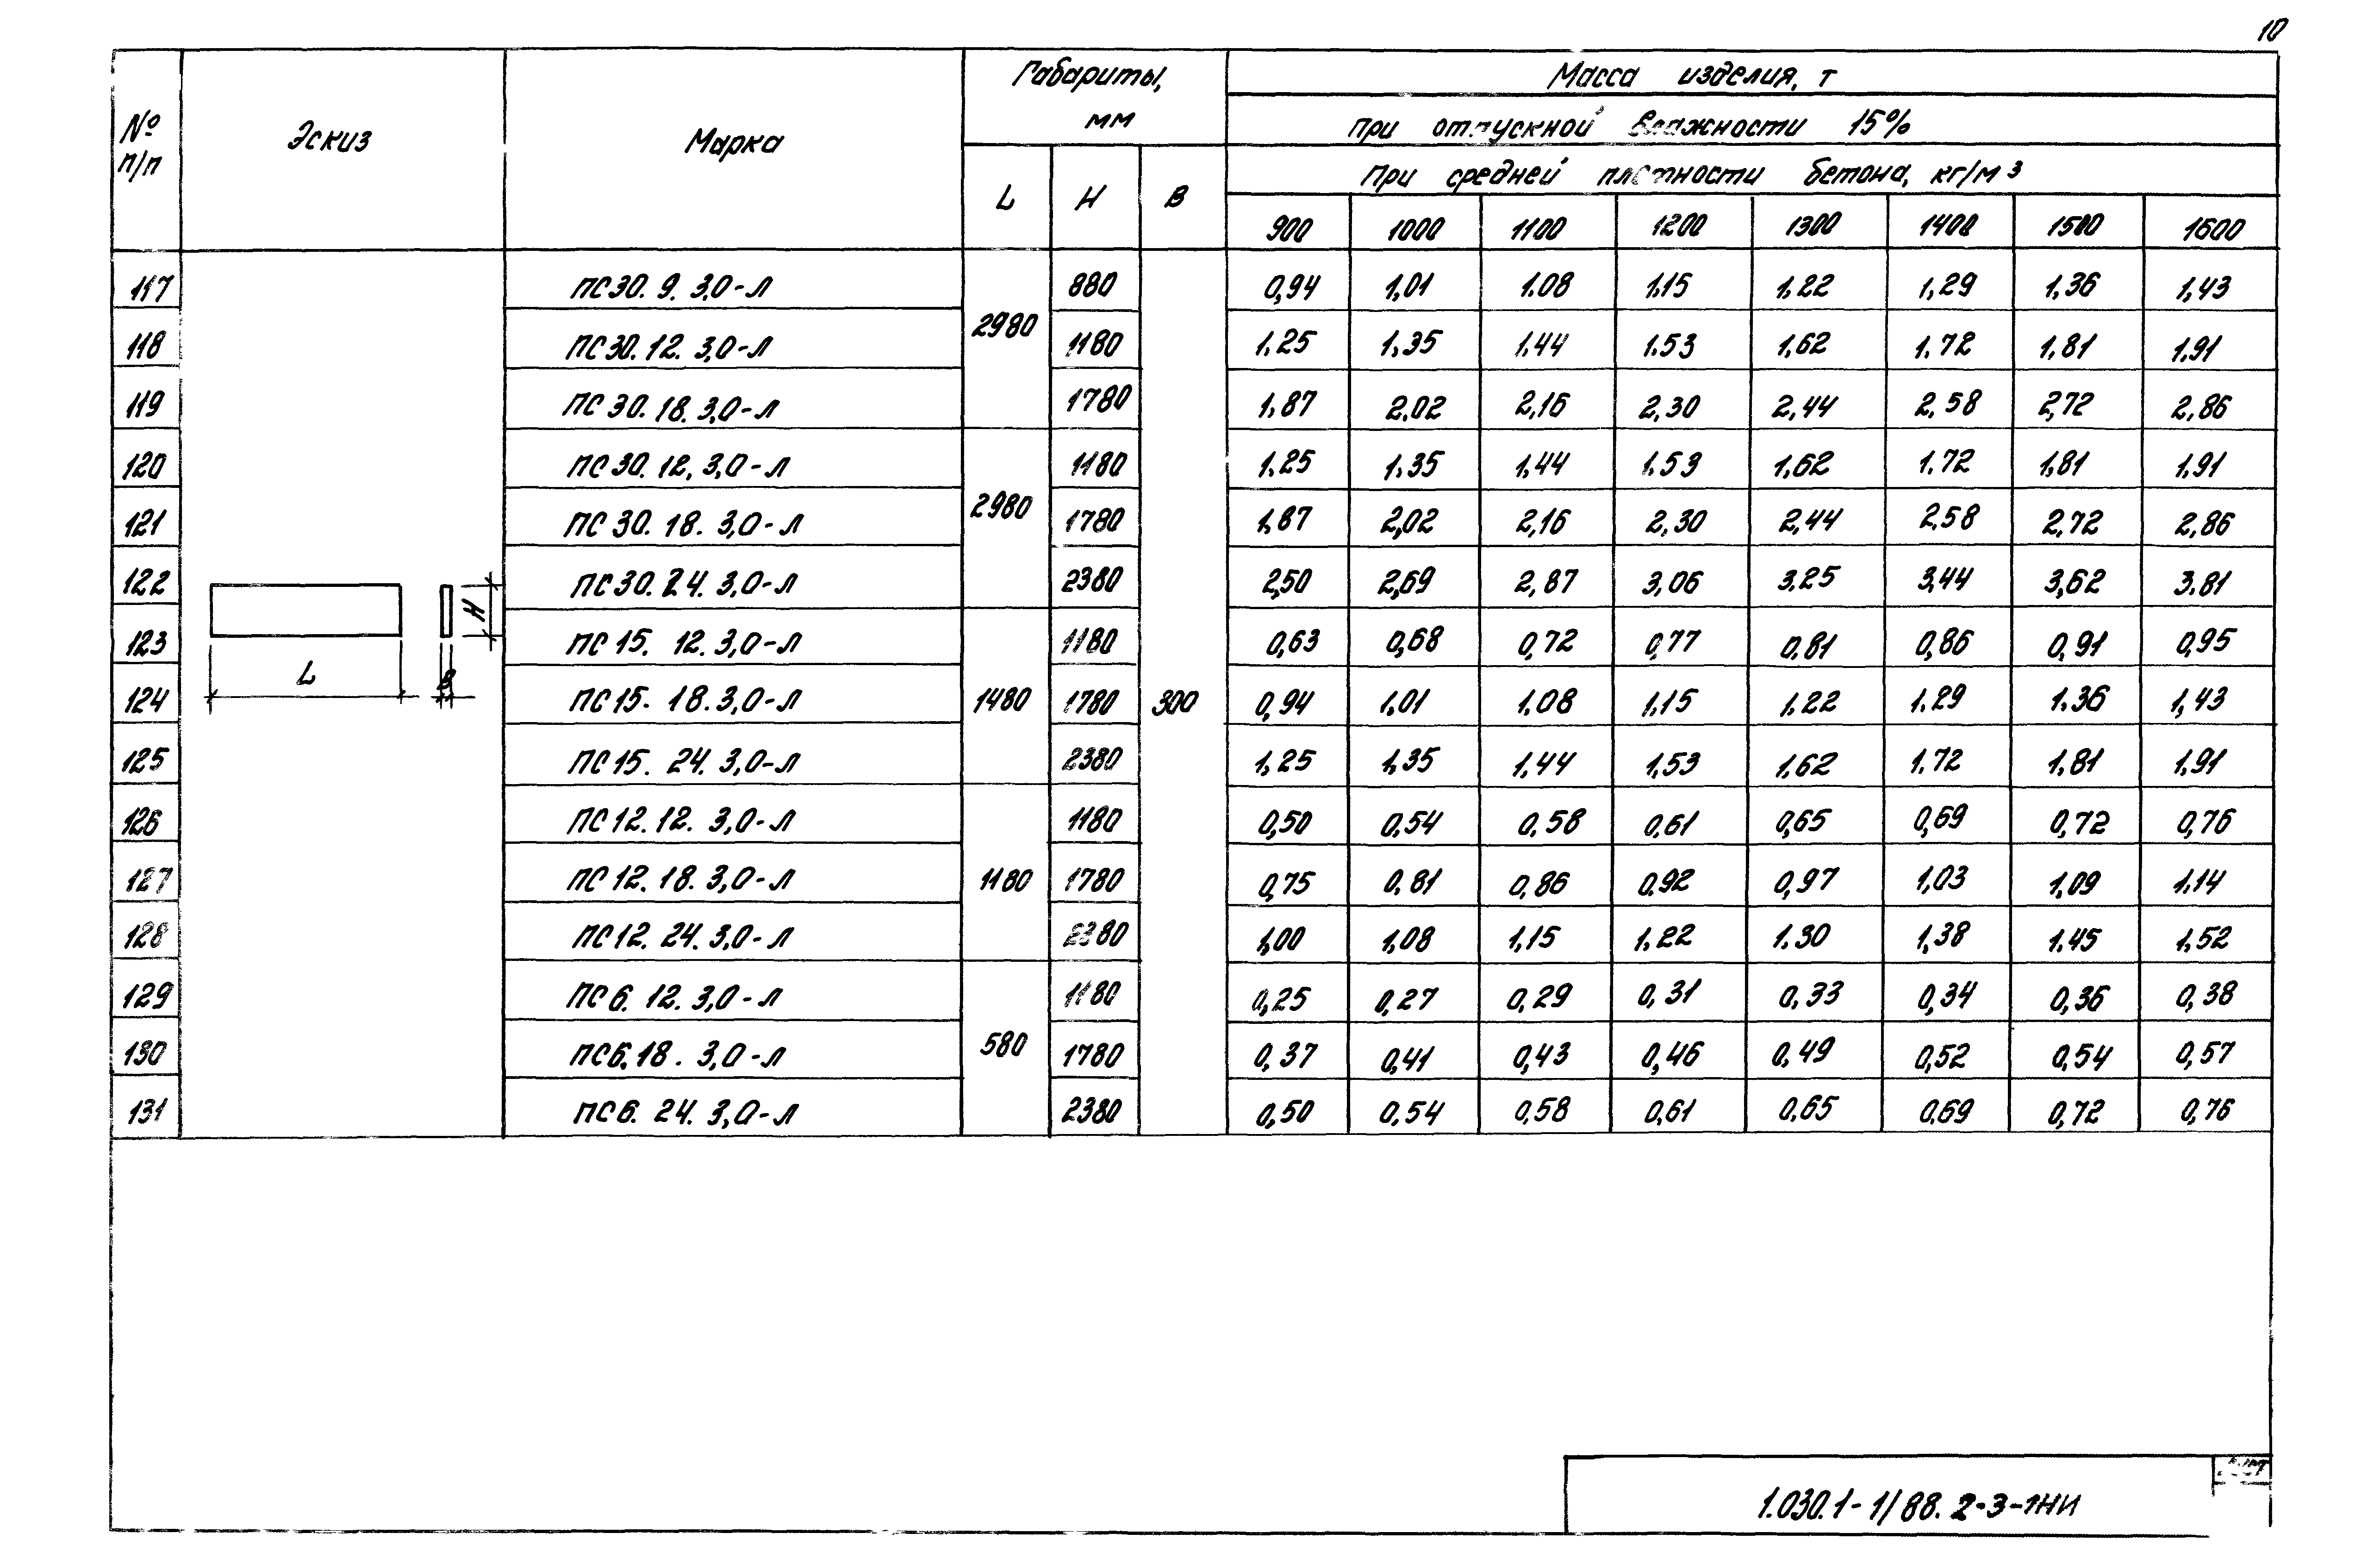 10
№ п/п Эскиз Марка Габариты, мм Масса изделия, т
при отпускной влажности 15%
При средней плотности бетона, кг/м³
L H B 900 1000 1100 1200 1300 1400 1500 1600
117 ПС30.9.3,0-л 2980 880 0,94 1,01 1.08 1,15 1,22 1,29 1,36 1,43
118 ПС30.12.3,0-л 1180 1,25 1,35 1,44 1.53 1,62 1.72 1,81 1.91
119 ПС30.18.3,0-л 1780 1,87 2.02 2,16 2,30 2,44 2,58 2,72 2,86
120 ПС30.12,3,0-л 2980 1180 1,25 1.35 1,44 1.53 1,62 1.72 1,81 1,91
121 ПС30.18.3,0-л 1780 1,87 2,02 2,16 2,30 2,44 2,58 2,72 2,86
122 ПС30.24.3,0-л 2380 2,50 2,69 2,87 3,06 3,25 3,44 3,62 3.81
123 ПС15.12.3,0-л 1480 1180 0,63 0,68 0,72 0,77 0,81 0,86 0,91 0,95
124 ПС15.18.3,0-л 1780 300 0,94 1,01 1,08 1,15 1.22 1.29 1.36 1,43
125 ПС15.24.3,0-л 2380 1,25 1,35 1,44 1,53 1,62 1.72 1,81 1,91
126 ПС12.12.3,0-л 1180 1180 0,50 0,54 0,58 0,61 0,65 0,69 0,72 0,76
127 ПС12.18.3,0-л 1780 0,75 0,81 0,86 0,92 0,97 1,03 1,09 1,14
128 ПС12.24.3,0-л 2380 1,00 1,08 1,15 1,22 1.30 1,38 1.45 1,52
129 ПС6.12.3,0-л 580 1180 0,25 0,27 0,29 0,31 0,33 0,34 0,36 0,38
130 ПС6.18.3,0-л 1780 0,37 0,41 0,43 0,46 0,49 0,52 0,54 0,57
131 ПС6.24.3,0-л 2380 0,50 0,54 0,58 0,61 0,65 0,69 0,72 0,76
H
L B
Лист
1.030.1-1/88.2-3-1НИ